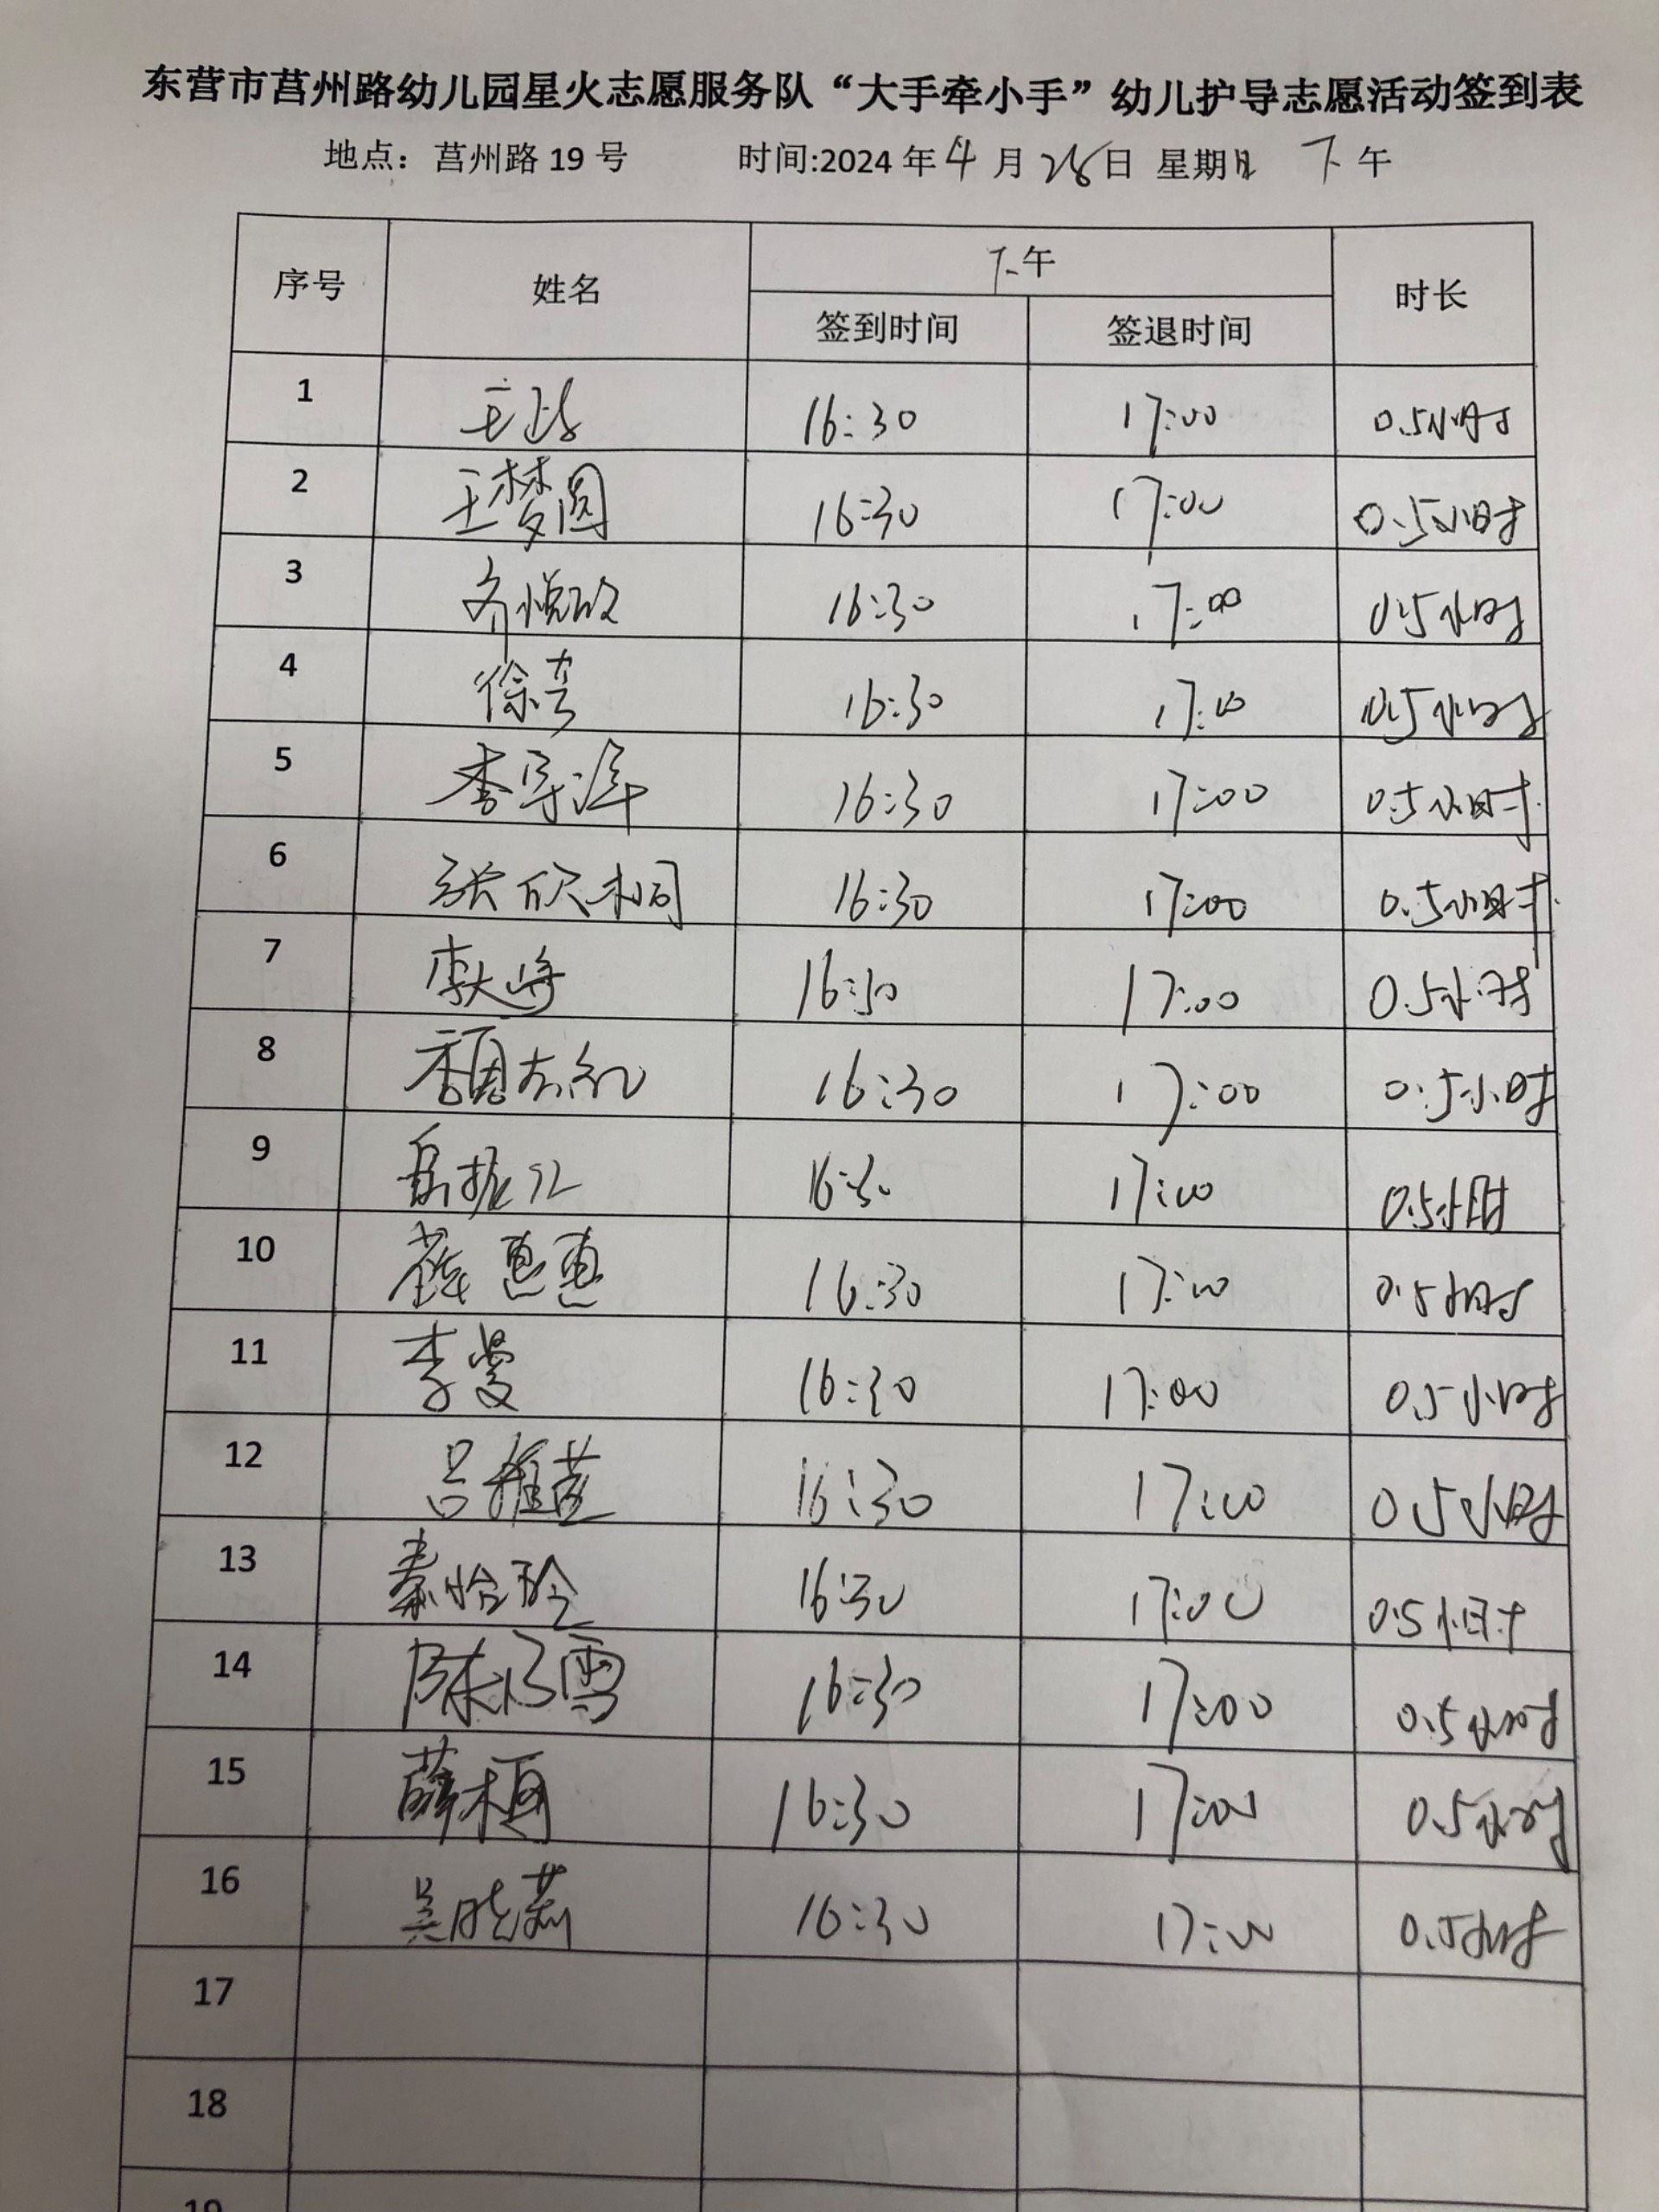 东营市莒州路幼儿园星火志愿服务队“大手牵小手”幼儿护导志愿活动签到表
地点：莒州路 19 号 时间:2024 年 4 月 28 日 星期日 下 午
序号 姓名 下午 时长
签到时间 签退时间
1 16:30 17:00 0.5小时
2 王梦圆 16:30 17:00 0.5小时
3 齐悦 16:30 17:00 0.5小时
4 徐 16:30 17:00 0.5小时
5 李 16:30 17:00 0.5小时
6 张欣桐 16:30 17:00 0.5小时
7 16:30 17:00 0.5小时
8 16:30 17:00 0.5小时
9 16:30 17:00 0.5小时
10 薛惠惠 16:30 17:00 0.5小时
11 李曼 16:30 17:00 0.5小时
12 吕 16:30 17:00 0.5小时
13 秦怡玲 16:30 17:00 0.5小时
14 陈 雪 16:30 17:00 0.5小时
15 薛 16:30 17:00 0.5小时
16 吴晓莉 16:30 17:00 0.5小时
17
18
19